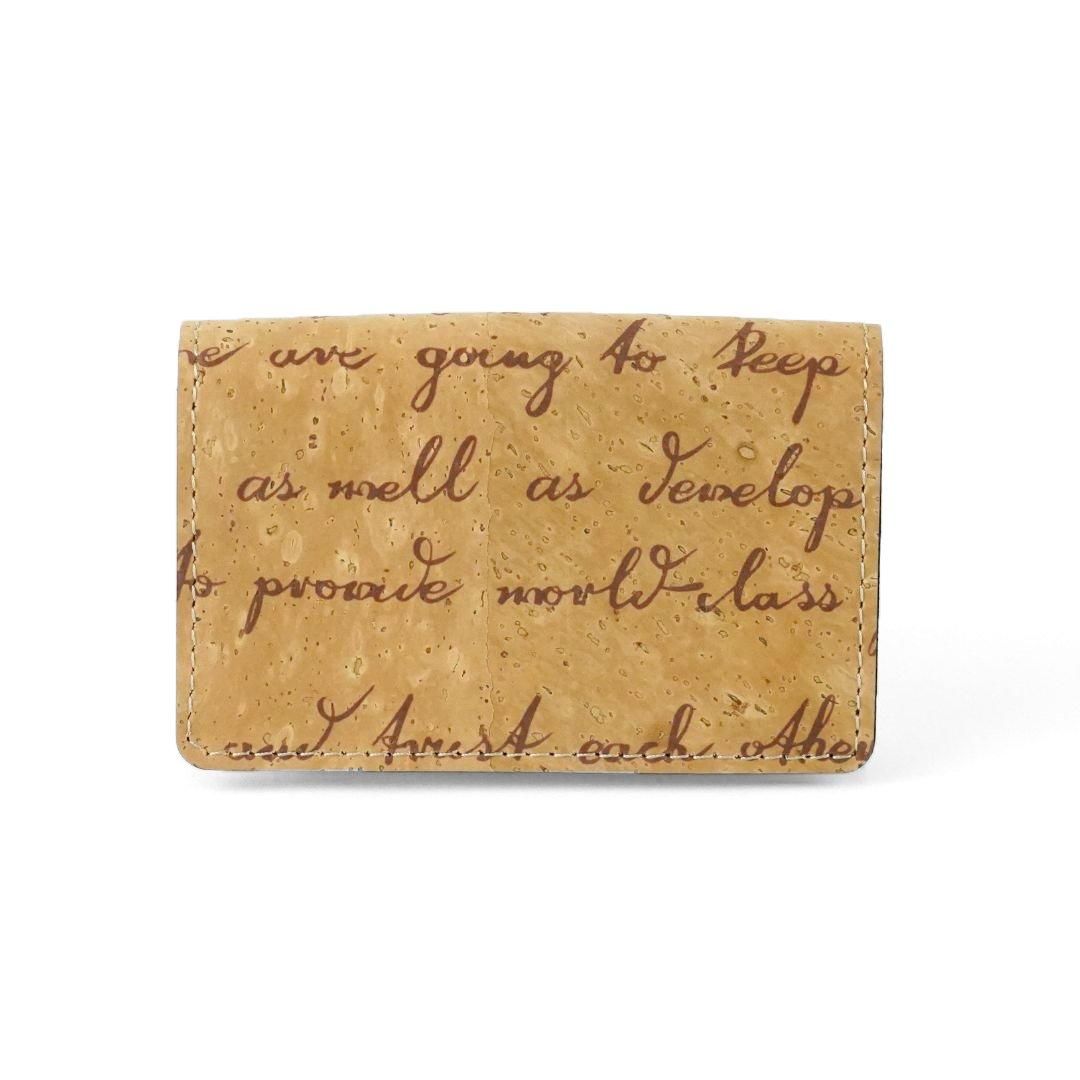 we are going to keep
as well as develop
to provide world-class
and trust each other